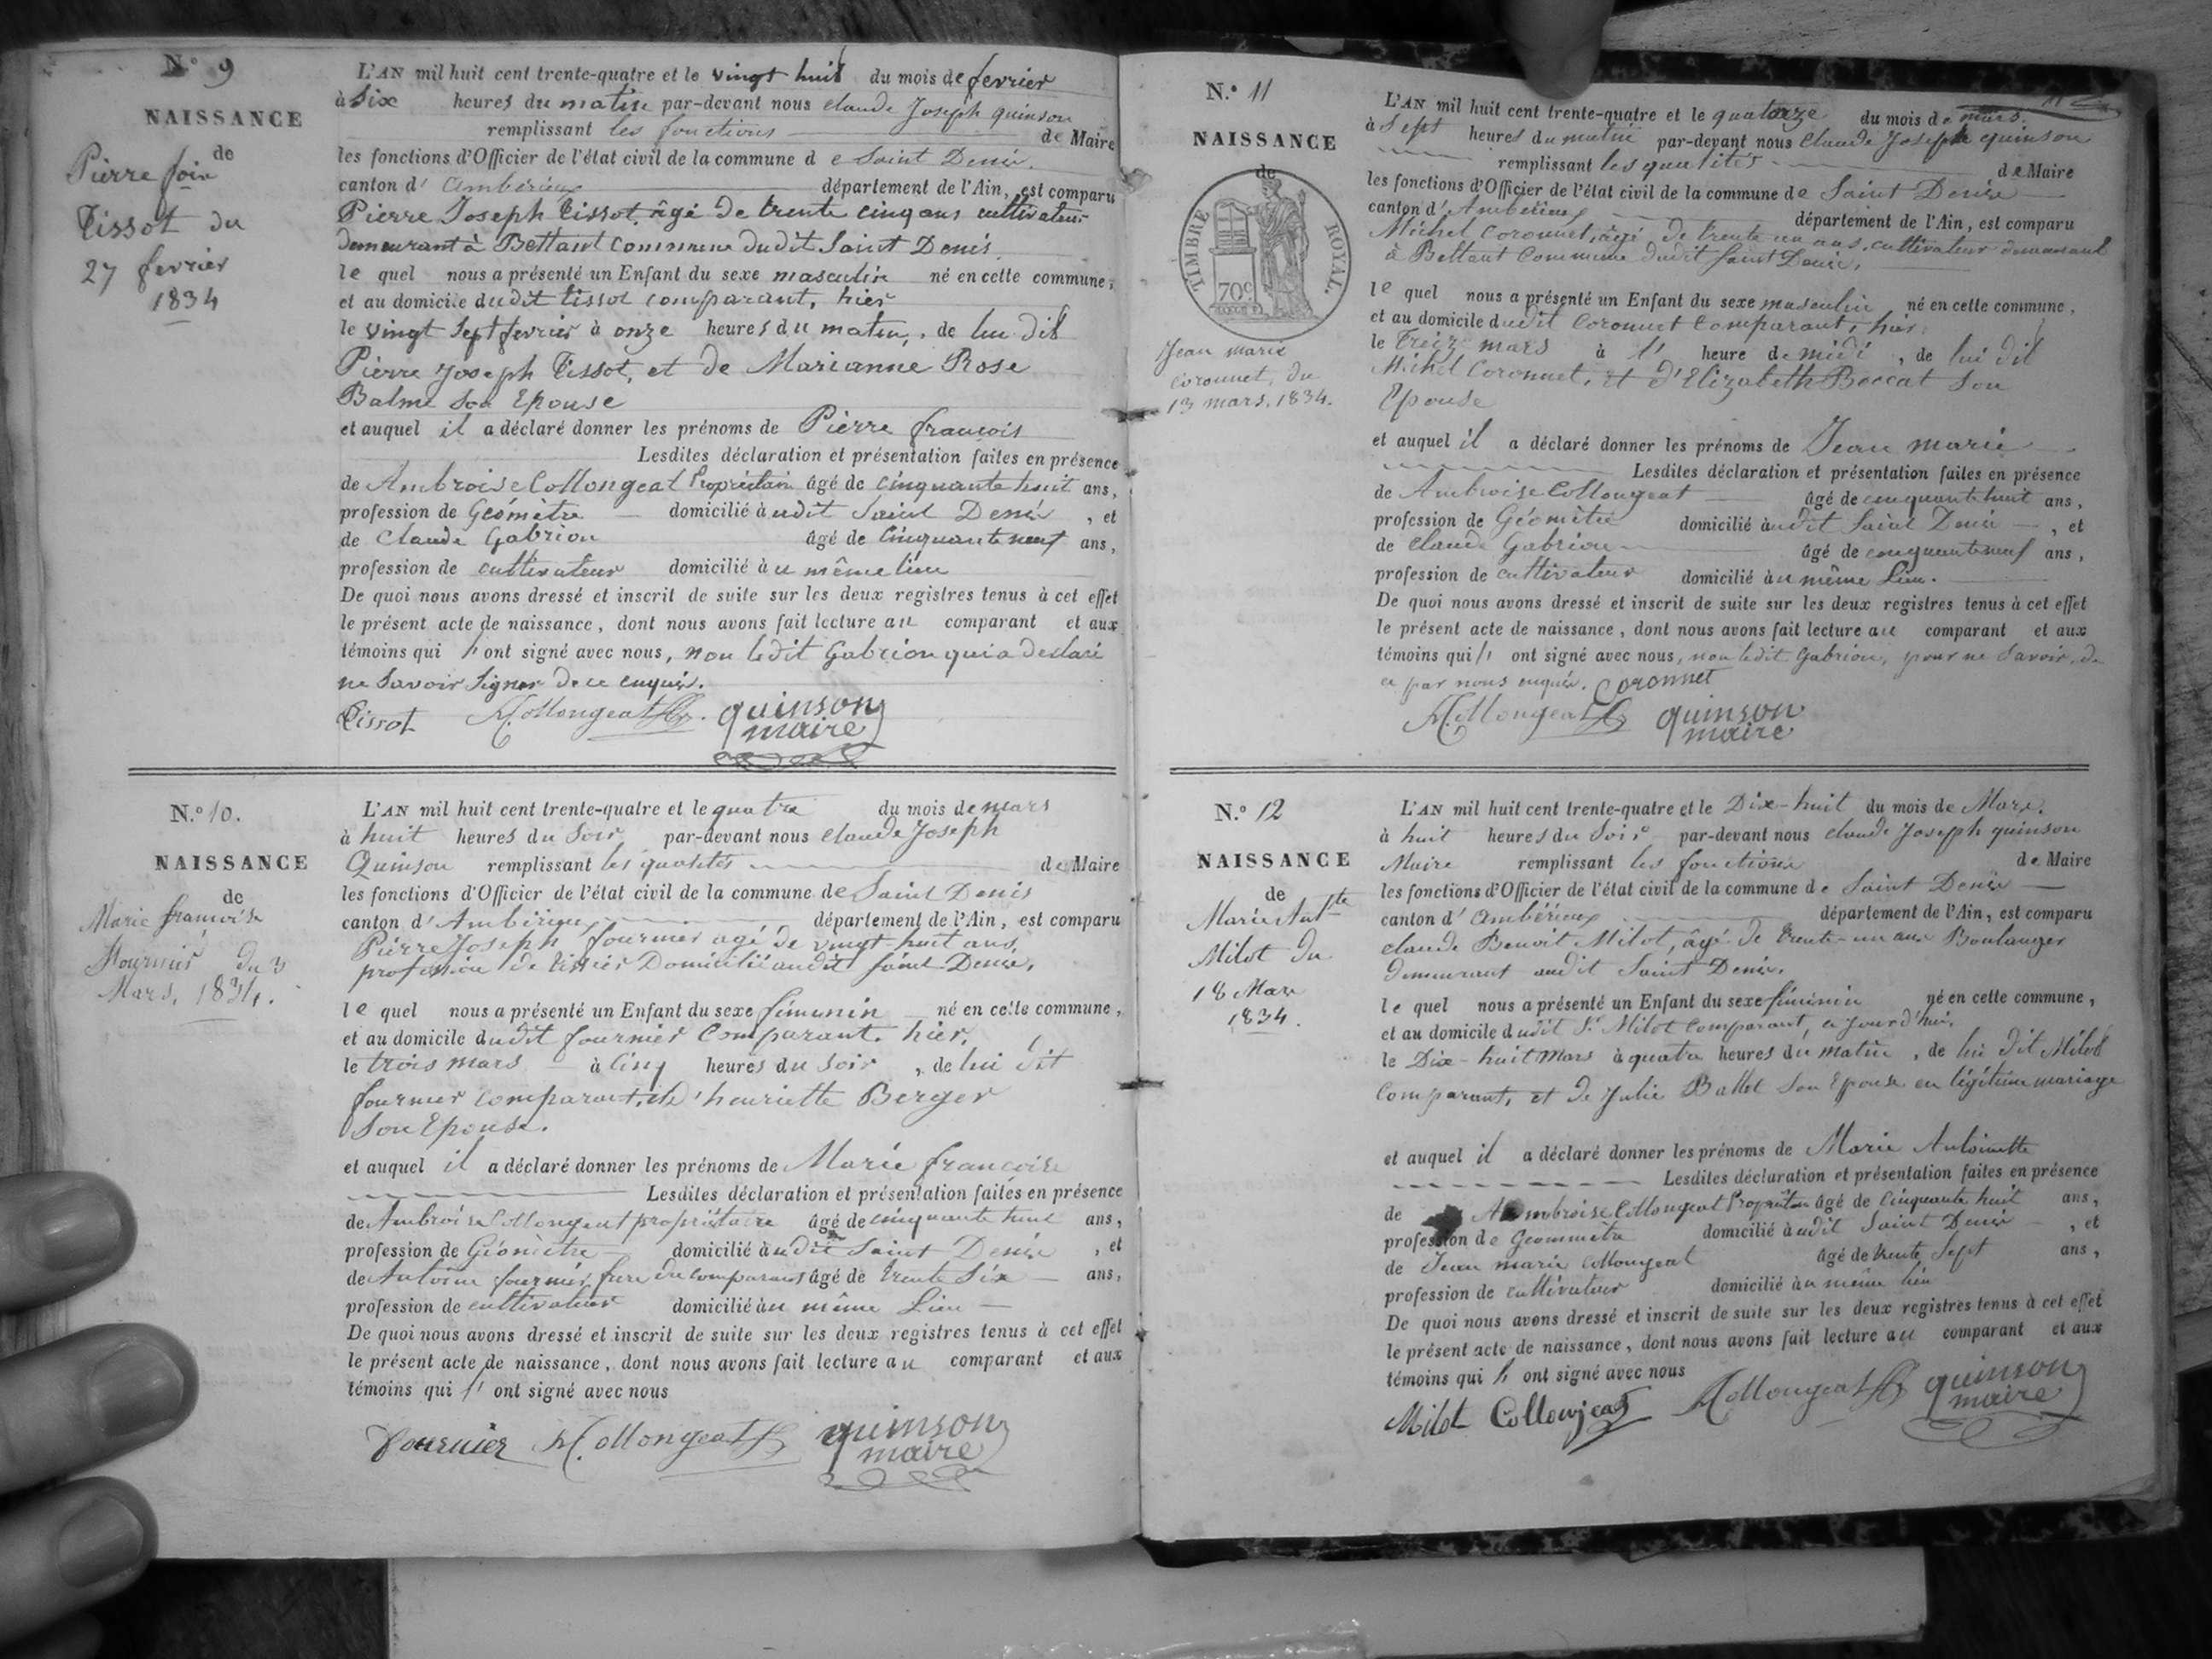 N.° 9
NAISSANCE
de
Pierre fois
Tissot du
27 fevrier
1834
L'AN mil huit cent trente-quatre et le vingt huit du mois de fevrier
à six heures du matin par-devant nous claude Joseph quinson
remplissant les fonctions de Maire
les fonctions d'Officier de l'état civil de la commune de Saint Denis
canton d' Ambérieux département de l'Ain, est comparu
Pierre Joseph Tissot âgé de trente cinq ans cultivateur
demeurant à Bettant commune dudit Saint Denis
le quel nous a présenté un Enfant du sexe masculin né en cette commune,
et au domicile dudit tissot comparant, hier
le vingt sept fevrier à onze heures du matin, de lui dit
Pierre Joseph Tissot, et de Marianne Rose
Balme son Epouse
et auquel il a déclaré donner les prénoms de Pierre francois
Lesdites déclaration et présentation faites en présence
de Ambroise Collongeat Propriétaire âgé de cinquante huit ans,
profession de Géomètre domicilié audit Saint Denis, et
de Claude Gabrion âgé de Cinquante neuf ans,
profession de cultivateur domicilié au même lieu
De quoi nous avons dressé et inscrit de suite sur les deux registres tenus à cet effet
le présent acte de naissance, dont nous avons fait lecture au comparant et aux
témoins qui ont signé avec nous, non ledit Gabrion qui a declaré
ne Savoir Signer de ce enquis.
Tissot A. Collongeat quinson
maire
N.° 10.
NAISSANCE
de
Marie françoise
fournier du 3
Mars, 1834.
L'AN mil huit cent trente-quatre et le quatre du mois de mars
à huit heures du Soir par-devant nous claude Joseph
Quinson remplissant les qualités de Maire
les fonctions d'Officier de l'état civil de la commune de Saint Denis
canton d'Ambérieux département de l'Ain, est comparu
Pierre Joseph fournier agé de vingt huit ans,
profession de tissier Domicilié audit Saint Denis,
le quel nous a présenté un Enfant du sexe féminin né en cette commune,
et au domicile dudit fournier Comparant. hier,
le trois mars à Cinq heures du Soir, de lui dit
fournier comparant, et d'henriette Berger
Son Epouse.
et auquel il a déclaré donner les prénoms de Marie françoise
Lesdites déclaration et présentation faites en présence
de Ambroise Collongeat propriétaire âgé de cinquante huit ans,
profession de Géomètre domicilié audit Saint Denis, et
de Antoine fournier frere du comparant âgé de trente Six ans,
profession de cultivateur domicilié au même Lieu
De quoi nous avons dressé et inscrit de suite sur les deux registres tenus à cet effet
le présent acte de naissance, dont nous avons fait lecture au comparant et aux
témoins qui ont signé avec nous
Fournier A. Collongeat quinson
maire
N.° 11
NAISSANCE
de
TIMBRE ROYAL.
70c
Jean marie
coronnet, du
13 mars. 1834.
L'AN mil huit cent trente-quatre et le quatorze du mois de mars.
à Sept heures du matin par-devant nous Claude Joseph quinson
remplissant les qualités de Maire
les fonctions d'Officier de l'état civil de la commune de Saint Denis
canton d'Ambérieux département de l'Ain, est comparu
Michel Coronnet, agé de trente un ans, cultivateur demeurant
à Bettant Commune dudit Saint Denis,
le quel nous a présenté un Enfant du sexe masculin né en cette commune,
et au domicile dudit Coronnet Comparant, hier
le Treize mars à 1' heure de midi, de lui dit
Michel Coronnet, et d'Elizabeth Boccat Son
Epouse
et auquel il a déclaré donner les prénoms de Jean marie
Lesdites déclaration et présentation faites en présence
de Ambroise Collongeat âgé de cinquante huit ans,
profession de Géomètre domicilié audit Saint Denis, et
de claude Gabrion âgé de cinquante neuf ans,
profession de cultivateur domicilié au même Lieu.
De quoi nous avons dressé et inscrit de suite sur les deux registres tenus à cet effet
le présent acte de naissance, dont nous avons fait lecture au comparant et aux
témoins qui ont signé avec nous, non ledit Gabrion, pour ne Savoir, de
ce par nous enquis. Coronnet
A. Collongeat quinson
maire
N.° 12
NAISSANCE
de
Marie Antte
Milot du
18 Mars
1834.
L'AN mil huit cent trente-quatre et le Dix-huit du mois de Mars.
à huit heures du Soir par-devant nous claude Joseph quinson
Maire remplissant les fonctions de Maire
les fonctions d'Officier de l'état civil de la commune de Saint Denis
canton d' Ambérieux département de l'Ain, est comparu
claude Benoit Milot, âgé de trente-un ans Boulanger
demeurant audit Saint Denis.
le quel nous a présenté un Enfant du sexe féminin né en cette commune,
et au domicile dudit Sr Milot comparant, ce jourd'hui,
le Dix-huit Mars à quatre heures du matin, de lui dit Milot
Comparant, et de Julie Ballot Son Epouse en légitime mariage
et auquel il a déclaré donner les prénoms de Marie Antoinette
Lesdites déclaration et présentation faites en présence
de Ambroise Collongeat Propriétaire âgé de Cinquante huit ans,
profession de Geommètre domicilié audit Saint Denis, et
de Jean marie Collongeat âgé de trente Sept ans,
profession de cultivateur domicilié au même lieu
De quoi nous avons dressé et inscrit de suite sur les deux registres tenus à cet effet
le présent acte de naissance, dont nous avons fait lecture au comparant et aux
témoins qui ont signé avec nous
Milot Collonjeat A. Collongeat quinson
maire